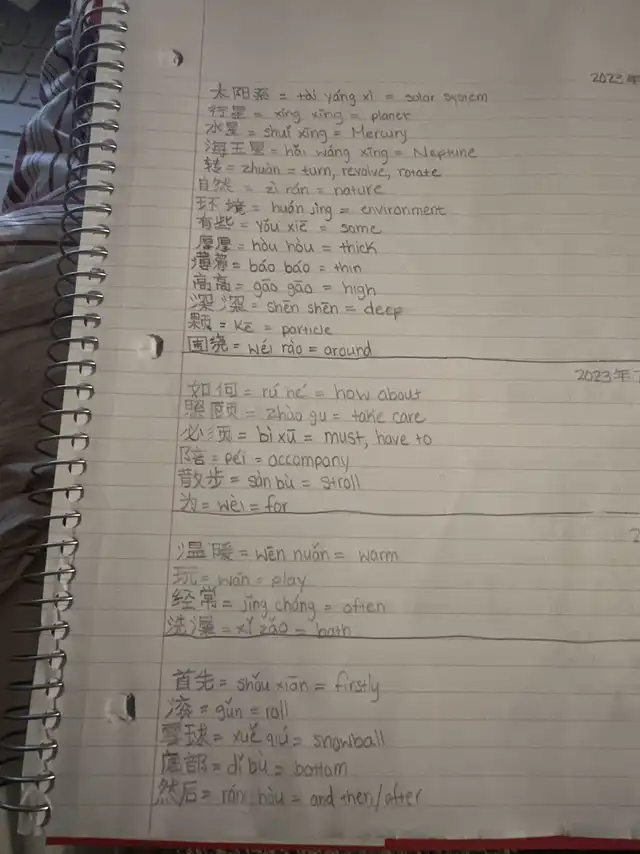 2023年
太阳系 = tài yáng xì = solar system
行星 = xíng xīng = planet
水星 = shuǐ xīng = Mercury
海王星 = hǎi wáng xīng = Neptune
转 = zhuàn = turn, revolve, rotate
自然 = zì rán = nature
环境 = huán jìng = environment
有些 = yǒu xiē = some
厚厚 = hòu hòu = thick
薄薄 = báo báo = thin
高高 = gāo gāo = high
深深 = shēn shēn = deep
颗 = kē = particle
围绕 = wéi rào = around
2023年
如何 = rú hé = how about
照顾 = zhào gu = take care
必须 = bì xū = must, have to
陪 = péi = accompany
散步 = sàn bù = stroll
为 = wèi = for
2
温暖 = wēn nuǎn = warm
玩 = wán = play
经常 = jīng cháng = often
洗澡 = xǐ zǎo = bath
首先 = shǒu xiān = firstly
滚 = gǔn = roll
雪球 = xuě qiú = snowball
底部 = dǐ bù = bottom
然后 = rán hòu = and then/after